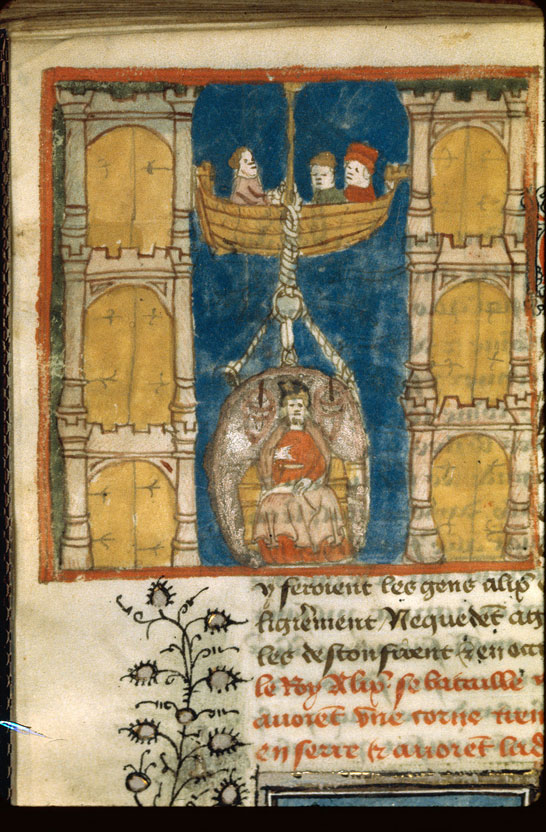 y feroient les gens alix̄
ligie᷑ment Nequedēt
les desconfirent ⁊ en
le Roy Alix̄ se bataille
auoient vne corne
en serre ⁊ auoiēt